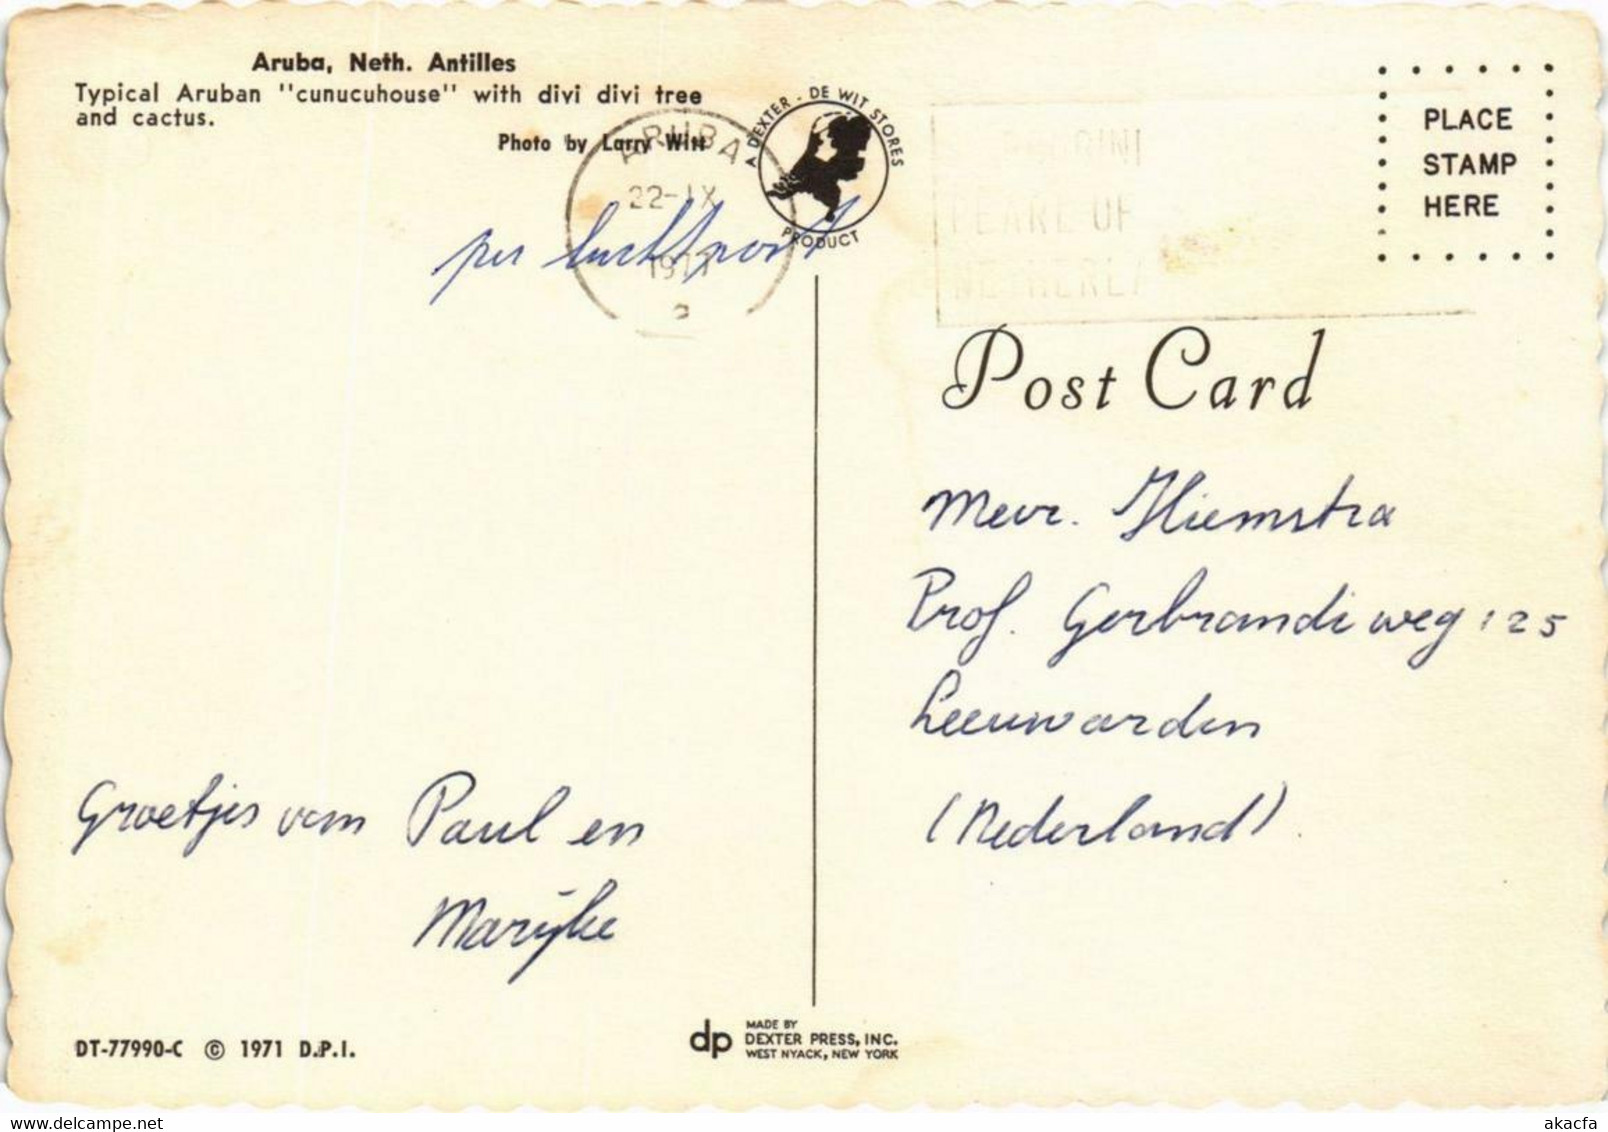 Aruba, Neth. Antilles
Typical Aruban "cunucuhouse" with divi divi tree
and cactus.
Photo by Larry Witt
ARUBA
22-IX
1971
A DEXTER - DE WIT STORES
PRODUCT
PEARL OF
PLACE
STAMP
HERE
per luchtpost
Post Card
Mevr. Hiemstra
Prof. Gerbrandi weg 125
Leeuwarden
(Nederland).
Groetjes van Paul en
Marijke
DT-77990-C © 1971 D.P.I.
dp MADE BY
DEXTER PRESS, INC.
WEST NYACK, NEW YORK
delcampe.net
akacfa